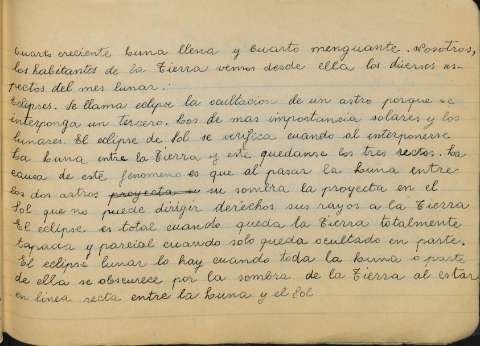 Cuarto creciente Luna llena y Cuarto menguante. Nosotros,
los habitantes de la Tierra vemos desde ella los diversos as-
pectos del mes lunar.
Eclipses. Se llama eclipse la ocultacion de un astro porque se
interponga un tercero. Los de mas importancia solares y los
lunares. El eclipse de Sol se verifica cuando al interponerse
la Luna entre la Tierra y este quedanse los tres rectos. La
causa de este fenomeno es que al pasar la Luna entre
los dos astros proyecta su su sombra la proyecta en el
Sol que no puede dirigir derechos sus rayos a la Tierra
El eclipse es total cuando queda la Tierra totalmente
tapada y parcial cuando solo queda ocultado en parte.
El eclipse lunar lo hay cuando toda la Luna o parte
de ella se obscurece por la sombra de la Tierra al estar
en linea recta entre la Luna y el Sol